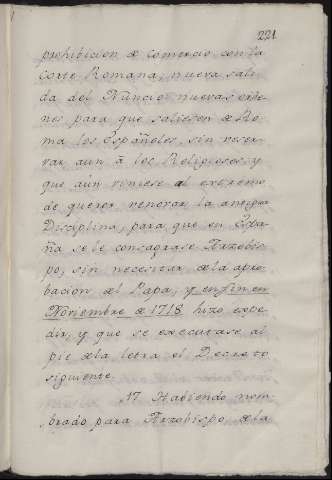 221
prohibicion de comercio con la
Corte Romana, nueva sali-
da del Nuncio nuevas orde-
nes para que saliesen de Ro-
ma los Españoles, sin reser-
var aun á los Religiosos, y
que aun viniese al extremo
de querer renovar la antigua
Disciplina, para que en Espa-
ña se le consagrase Arzobis-
po, sin necesitar de la apro-
bacion del Papa, y en fin en
Noviembre de 1718 hizo expe-
dir, y que se executase al
pie de la letra el Decreto
siguiente.
17 Habiendo nom-
brado para Arzobispo de la